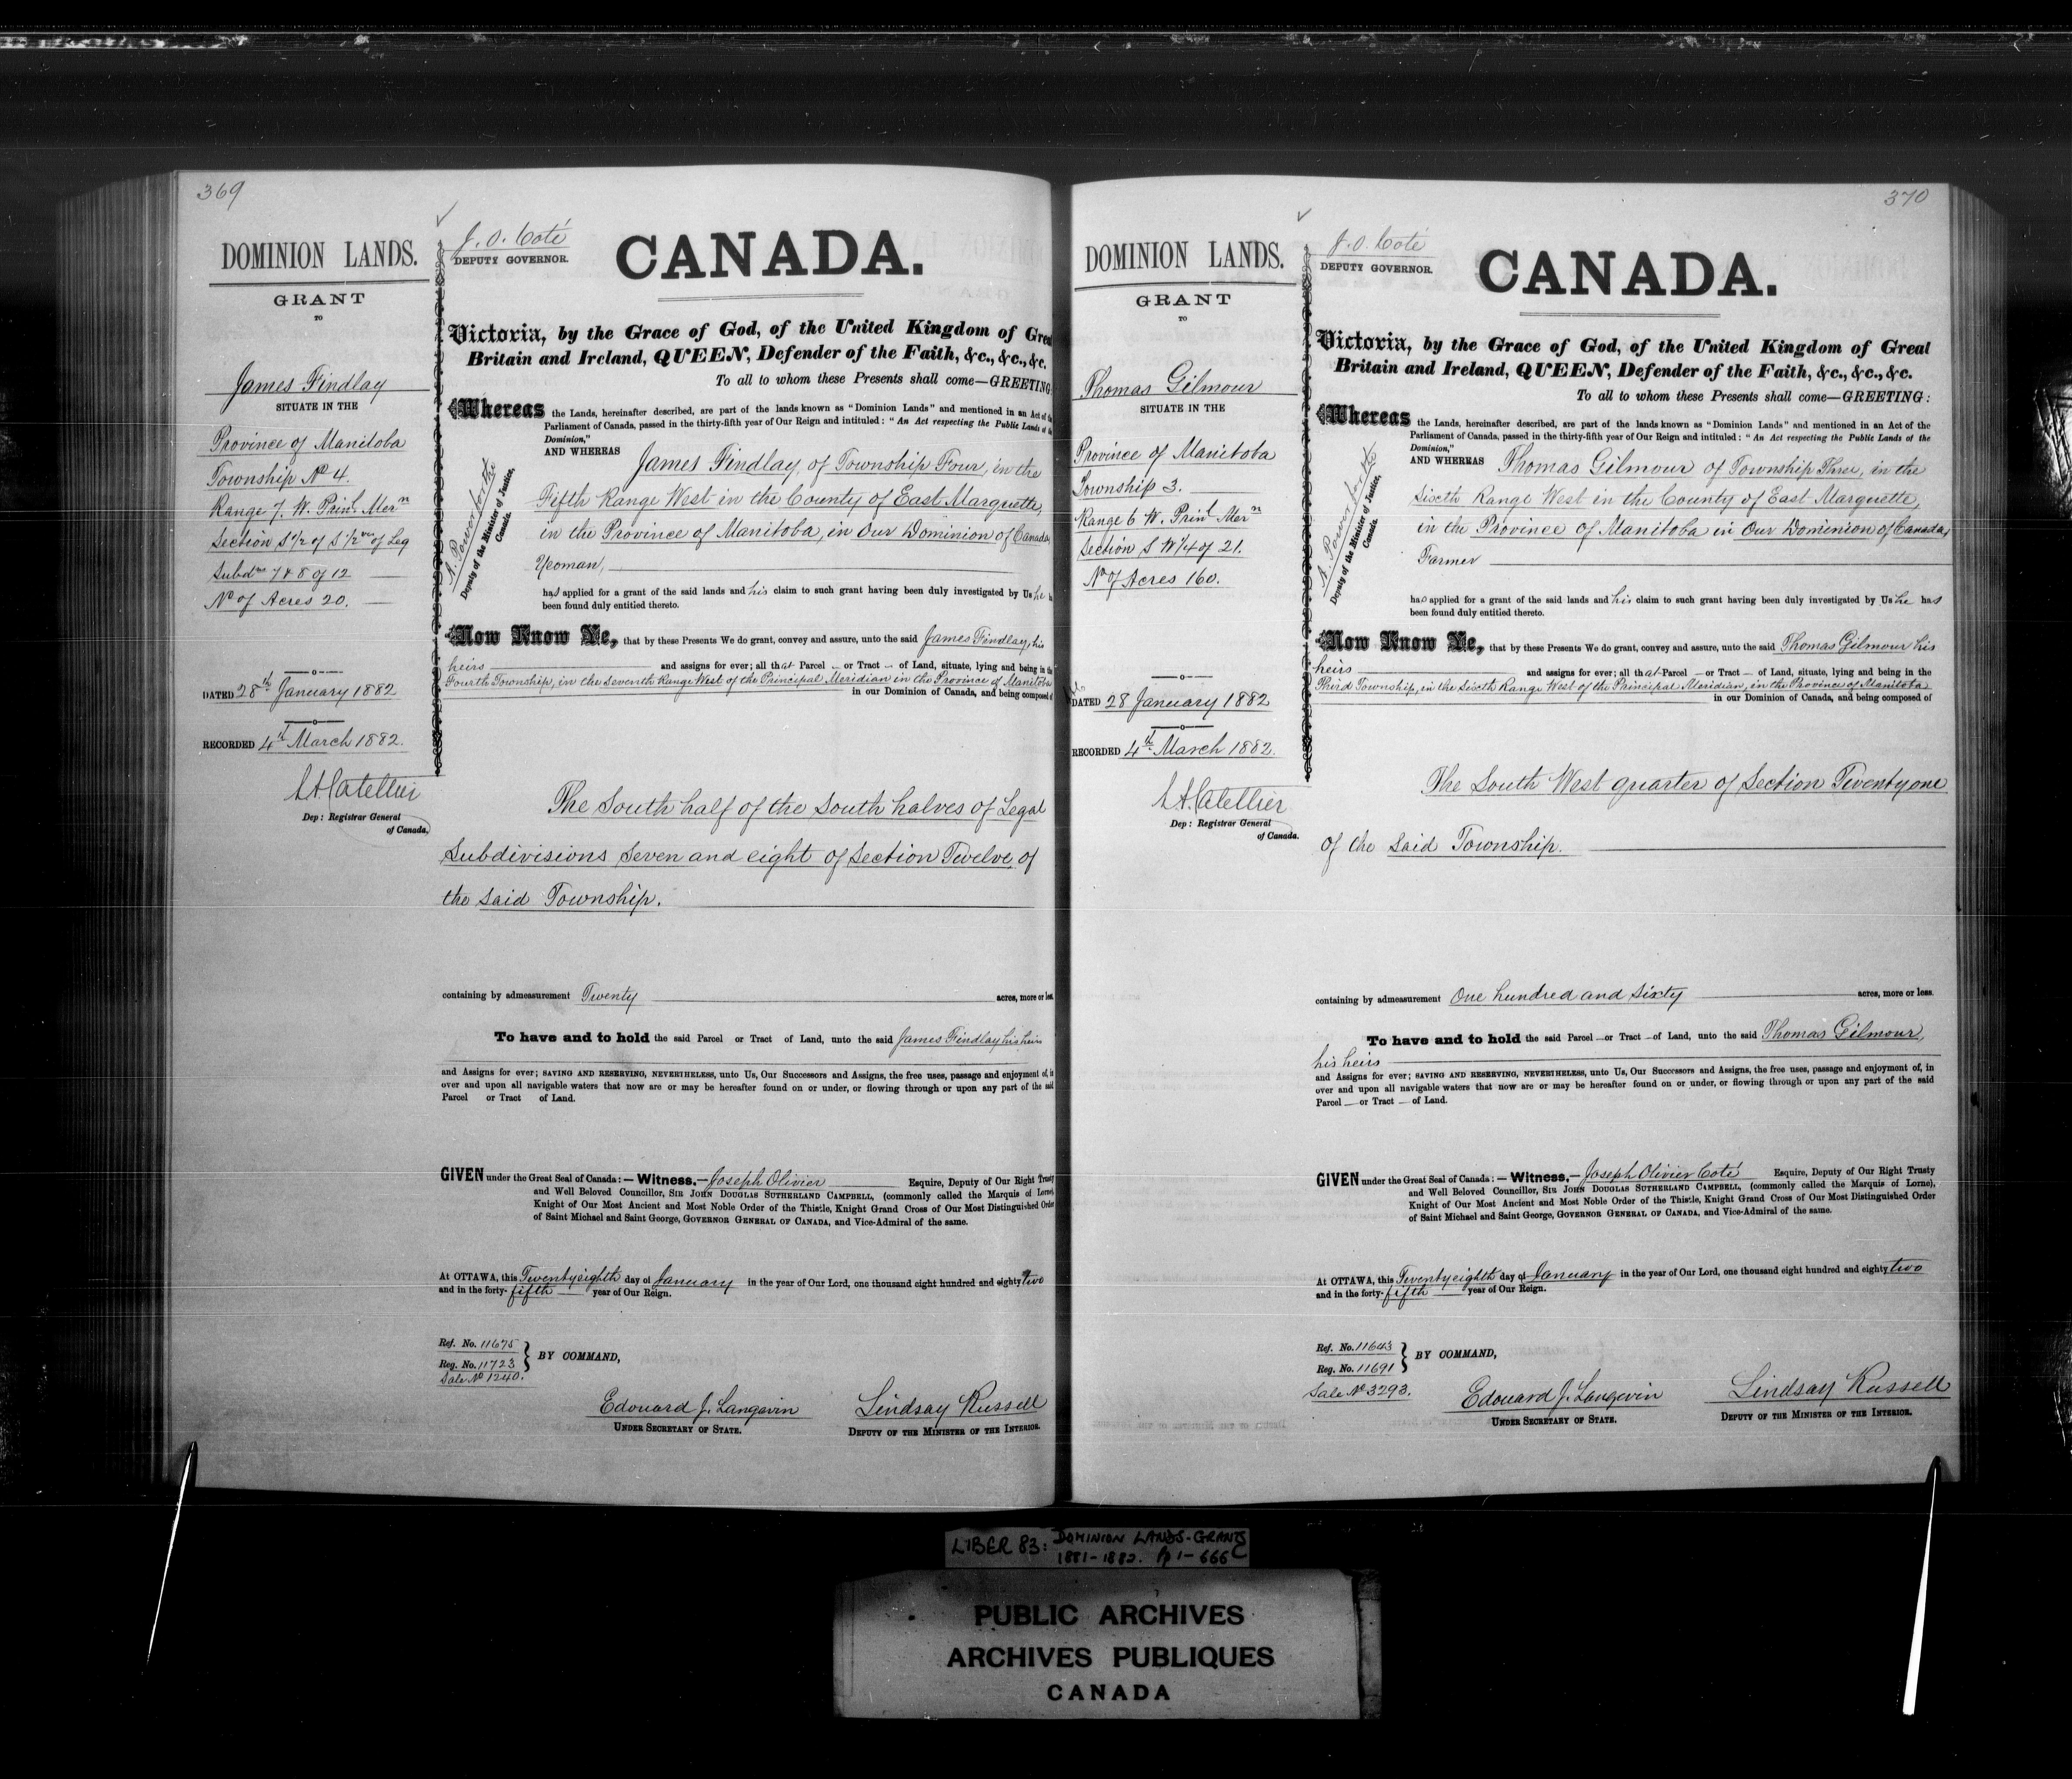 369
DOMINION LANDS.
GRANT
TO
James Findlay
SITUATE IN THE
Province of Manitoba
Township No 4.
Range 7. W. Prinl. Mern
Section S 1/2 of S 1/2ves of Leg
Subdns 7 & 8 of 12
No of Acres 20.
DATED 28th January 1882
RECORDED 4th March 1882.
L A Catellier
Dep: Registrar General
of Canada.
J. O. Coté
DEPUTY GOVERNOR.
CANADA.
Victoria, by the Grace of God, of the United Kingdom of Great
Britain and Ireland, QUEEN, Defender of the Faith, &c., &c., &c.
To all to whom these Presents shall come—GREETING
Whereas the Lands, hereinafter described, are part of the lands known as "Dominion Lands" and mentioned in an Act of the
Parliament of Canada, passed in the thirty-fifth year of Our Reign and intituled: "An Act respecting the Public Lands of the
Dominion,"
A. Power for the
Deputy of the Minister of Justice,
Canada.
AND WHEREAS James Findlay of Township Four, in the
Fifth Range West in the County of East Marquette,
in the Province of Manitoba, in Our Dominion of Canada,
Yeoman,
has applied for a grant of the said lands and his claim to such grant having been duly investigated by Us he
been found duly entitled thereto.
Now Know Ye, that by these Presents We do grant, convey and assure, unto the said James Findlay, his
heirs and assigns for ever; all that Parcel — or Tract — of Land, situate, lying and being in the
Fourth Township, in the Seventh Range West of the Principal Meridian in the Province of Manitoba
in our Dominion of Canada, and being composed of
The South half of the South halves of Legal
Subdivisions Seven and eight of Section Twelve of
the said Township.
containing by admeasurement Twenty acres, more or less
To have and to hold the said Parcel or Tract of Land, unto the said James Findlay his heirs
and Assigns for ever; SAVING AND RESERVING, NEVERTHELESS, unto Us, Our Successors and Assigns, the free uses, passage and enjoyment of, in
over and upon all navigable waters that now are or may be hereafter found on or under, or flowing through or upon any part of the said
Parcel or Tract of Land.
GIVEN under the Great Seal of Canada:— Witness,— Joseph Olivier Esquire, Deputy of Our Right Trusty
and Well Beloved Councillor, SIR JOHN DOUGLAS SUTHERLAND CAMPBELL, (commonly called the Marquis of Lorne)
Knight of Our Most Ancient and Most Noble Order of the Thistle, Knight Grand Cross of Our Most Distinguished Order
of Saint Michael and Saint George, GOVERNOR GENERAL OF CANADA, and Vice-Admiral of the same.
At OTTAWA, this Twenty eighth day of January in the year of Our Lord, one thousand eight hundred and eighty two
and in the forty-fifth year of Our Reign.
Ref. No. 11675
Reg. No. 11723
Sale No 1240.
BY COMMAND,
Edouard J. Langevin
UNDER SECRETARY OF STATE.
Lindsay Russell
DEPUTY OF THE MINISTER OF THE INTERIOR.
370
DOMINION LANDS.
GRANT
TO
Thomas Gilmour
SITUATE IN THE
Province of Manitoba
Township 3.
Range 6 W. Prinl Mern
Section S W 1/4 of 21.
No of Acres 160.
DATED 28 January 1882
RECORDED 4th March 1882.
L A Catellier
Dep: Registrar General
of Canada.
J. O. Coté
DEPUTY GOVERNOR.
CANADA.
Victoria, by the Grace of God, of the United Kingdom of Great
Britain and Ireland, QUEEN, Defender of the Faith, &c., &c., &c.
To all to whom these Presents shall come—GREETING:
Whereas the Lands, hereinafter described, are part of the lands known as "Dominion Lands" and mentioned in an Act of the
Parliament of Canada, passed in the thirty-fifth year of Our Reign and intituled: "An Act respecting the Public Lands of the
Dominion,"
A. Power for the
Deputy of the Minister of Justice,
Canada.
AND WHEREAS Thomas Gilmour of Township Three, in the
Sixth Range West in the County of East Marquette,
in the Province of Manitoba in Our Dominion of Canada,
Farmer
has applied for a grant of the said lands and his claim to such grant having been duly investigated by Us he has
been found duly entitled thereto.
Now Know Ye, that by these Presents We do grant, convey and assure, unto the said Thomas Gilmour his
heirs and assigns for ever; all that Parcel — or Tract — of Land, situate, lying and being in the
Third Township, in the Sixth Range West of the Principal Meridian, in the Province of Manitoba
in our Dominion of Canada, and being composed of
The South West quarter of Section Twenty one
of the said Township.
containing by admeasurement One hundred and sixty acres, more or less.
To have and to hold the said Parcel — or Tract — of Land, unto the said Thomas Gilmour,
his heirs
and Assigns for ever; SAVING AND RESERVING, NEVERTHELESS, unto Us, Our Successors and Assigns, the free uses, passage and enjoyment of, in
over and upon all navigable waters that now are or may be hereafter found on or under, or flowing through or upon any part of the said
Parcel — or Tract — of Land.
GIVEN under the Great Seal of Canada:— Witness,— Joseph Olivier Coté Esquire, Deputy of Our Right Trusty
and Well Beloved Councillor, SIR JOHN DOUGLAS SUTHERLAND CAMPBELL, (commonly called the Marquis of Lorne),
Knight of Our Most Ancient and Most Noble Order of the Thistle, Knight Grand Cross of Our Most Distinguished Order
of Saint Michael and Saint George, GOVERNOR GENERAL OF CANADA, and Vice-Admiral of the same.
At OTTAWA, this Twenty eighth day of January in the year of Our Lord, one thousand eight hundred and eighty two
and in the forty-fifth year of Our Reign.
Ref. No. 11643
Reg. No. 11691
Sale No 3293.
BY COMMAND,
Edouard J. Langevin
UNDER SECRETARY OF STATE.
Lindsay Russell
DEPUTY OF THE MINISTER OF THE INTERIOR.
LIBER 83: DOMINION LANDS-GRANTS
1881-1882. Pp 1-666
PUBLIC ARCHIVES
ARCHIVES PUBLIQUES
CANADA